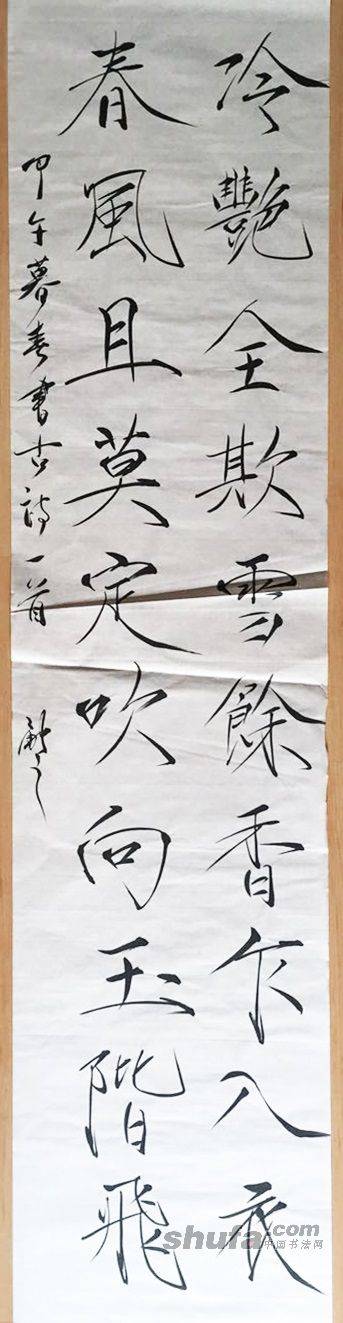 冷艷全欺雪餘香乍入衣
春風且莫定吹向玉階飛
甲午暮春書古詩一首
shufa.com
中国书法网